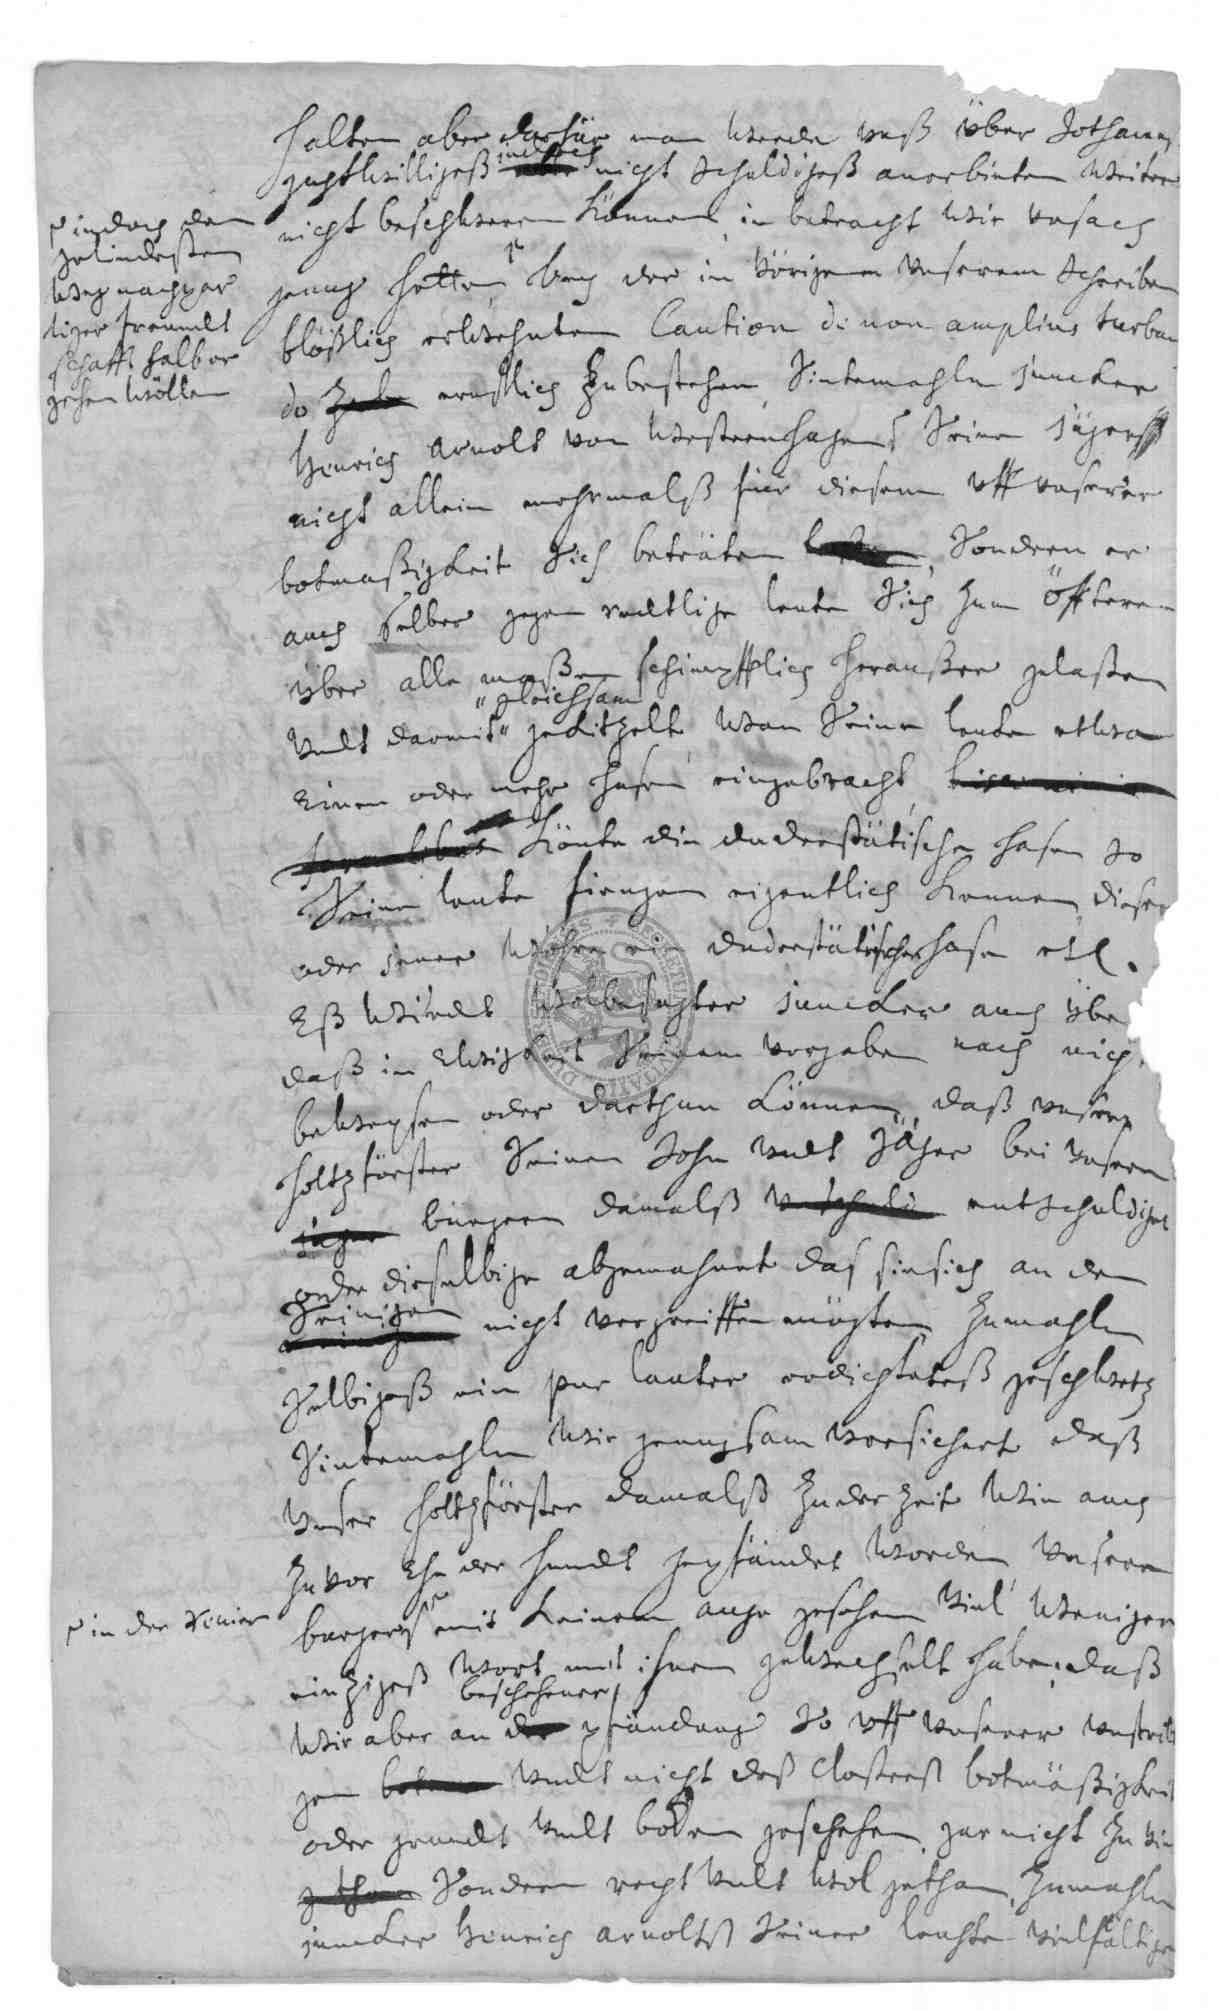 halten aber darfür man werde unß über Sothanes
guthwilligeß jedoch nicht schuldigeß anerbieten weiter
nicht beschweren können, in betracht wir ursach
genug hetten, bey der in vörigem unserem schreiben
blößlich erwehnten Caution de non amplius turban
do ernstlich zubestehen, Sintemahln Juncker
Henrich Arnolt von Westernhagens Seine Jägers
nicht allein mehrmalß für diesem uff unserer
botmaßigkeit sich beträten, Sondern er
auch selber gegen redtlige leute Sich zum öffteren
über alle maßen schimpfflich heraußer gelaßen
undt darmit gleichsam gekitzelt wan Seine leute etwa
Einen oder mehr hasen eingebracht,
könte die duderstätische hasen so
Seine leute fiengen eigentlich kennen, dieser
oder jener wehre ein duderstätischer hase etc.
Eß wirdt wolbesagter Juncker auch übe
daß in Ewigkeit Seinem vorgeben nach nich
beweysen oder darthun können, daß unser
holtzförster Seinen Sohn undt Jäger bei unsern
bürgern damalß entschuldiget
oder dieselbige abgemahnet das sie sich an den
Seinigen nicht vergreiffen mögten, Zumahln
Selbigeß ein pur lauter erdichteteß geschwetz
Sintemahln wir genugsam versichert daß
unser holtzförster damalß zu der zeit wie auch
zuvor Ehe der hundt gepfändet worden, unsere
burgers mit keinem auge gesehen viel weniger
eintzigeß wort mit ihnen gewechselt habe, daß
wir aber an beschehener pfändung so uff unserer unstreiti
gen undt nicht deß Closterß botmäßigkeit
oder grundt undt boden geschehen gar nicht zu viel
Sondern recht undt wol gethan, Zumahln
Juncker Henrich Arnoltß Seiner leuhte vielfältige
indoch den
gelindesten
weg nachpar
liger freundt
schafft halber
gehen wöllen
in der revier